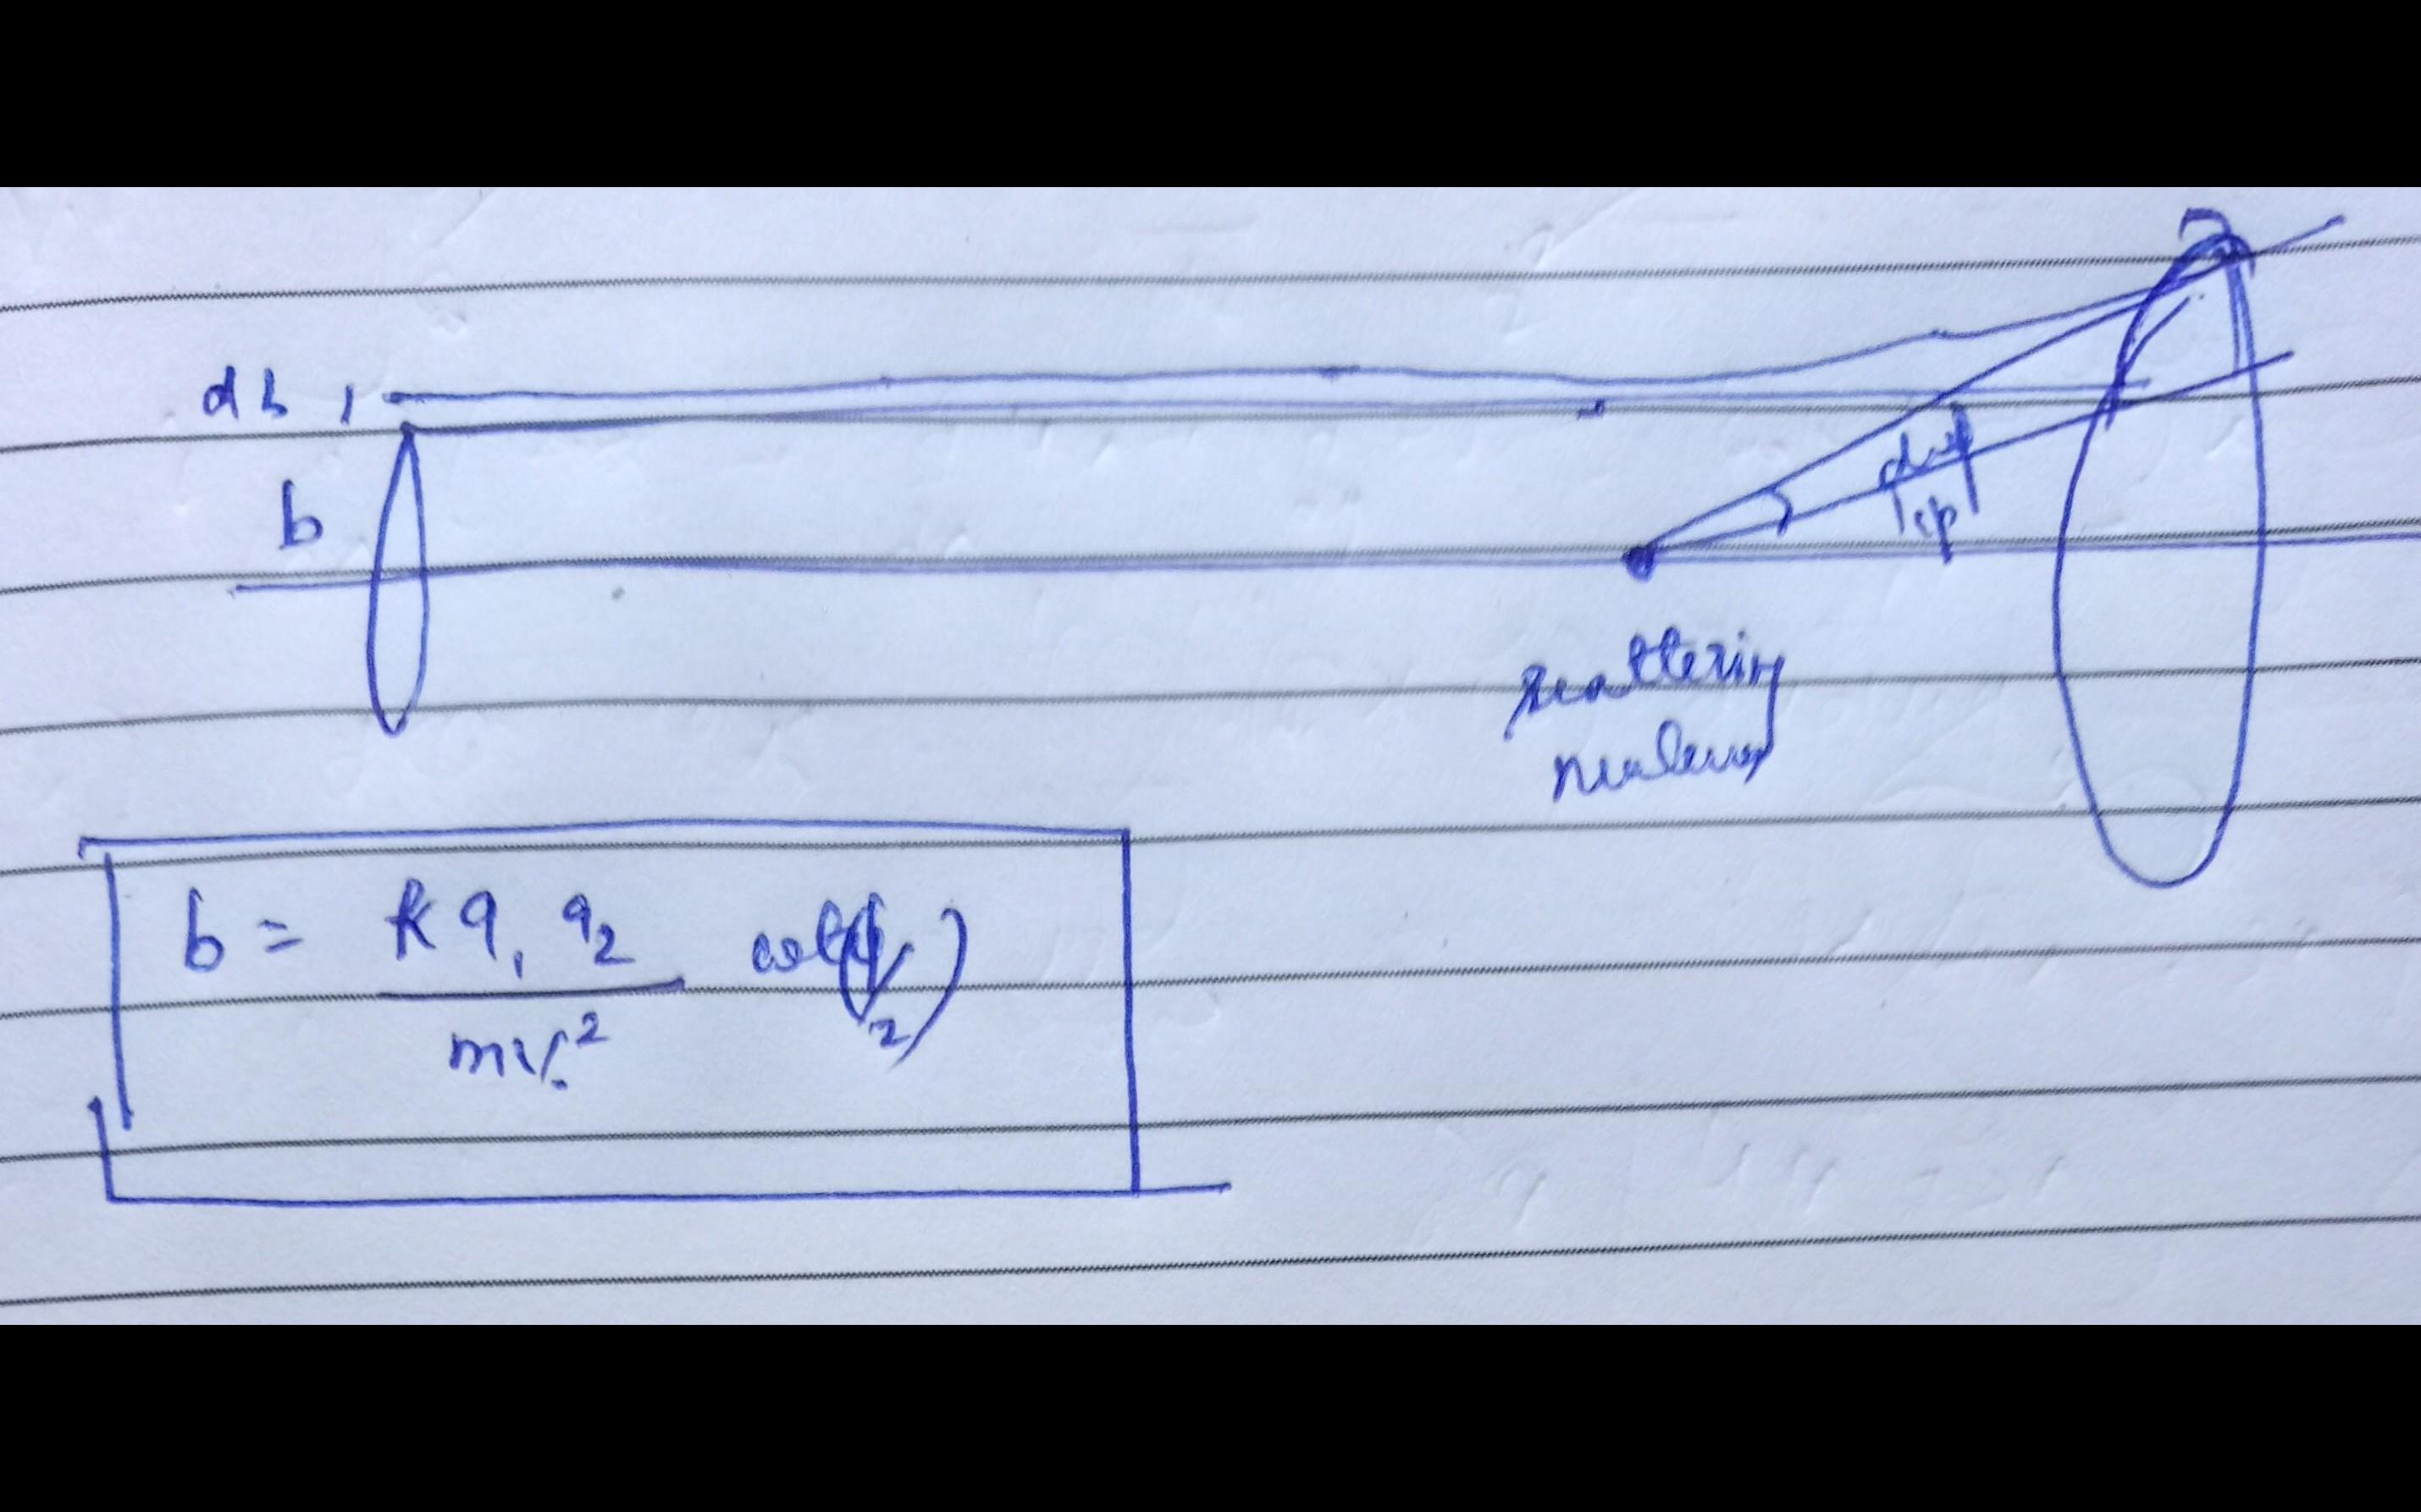 db
b
dφ
φ
scattering
nucleus
b = k q₁ q₂ / mv₀² cot(φ/2)